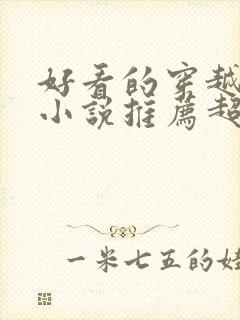 好看的穿越
小说推荐超
一米七五的娃